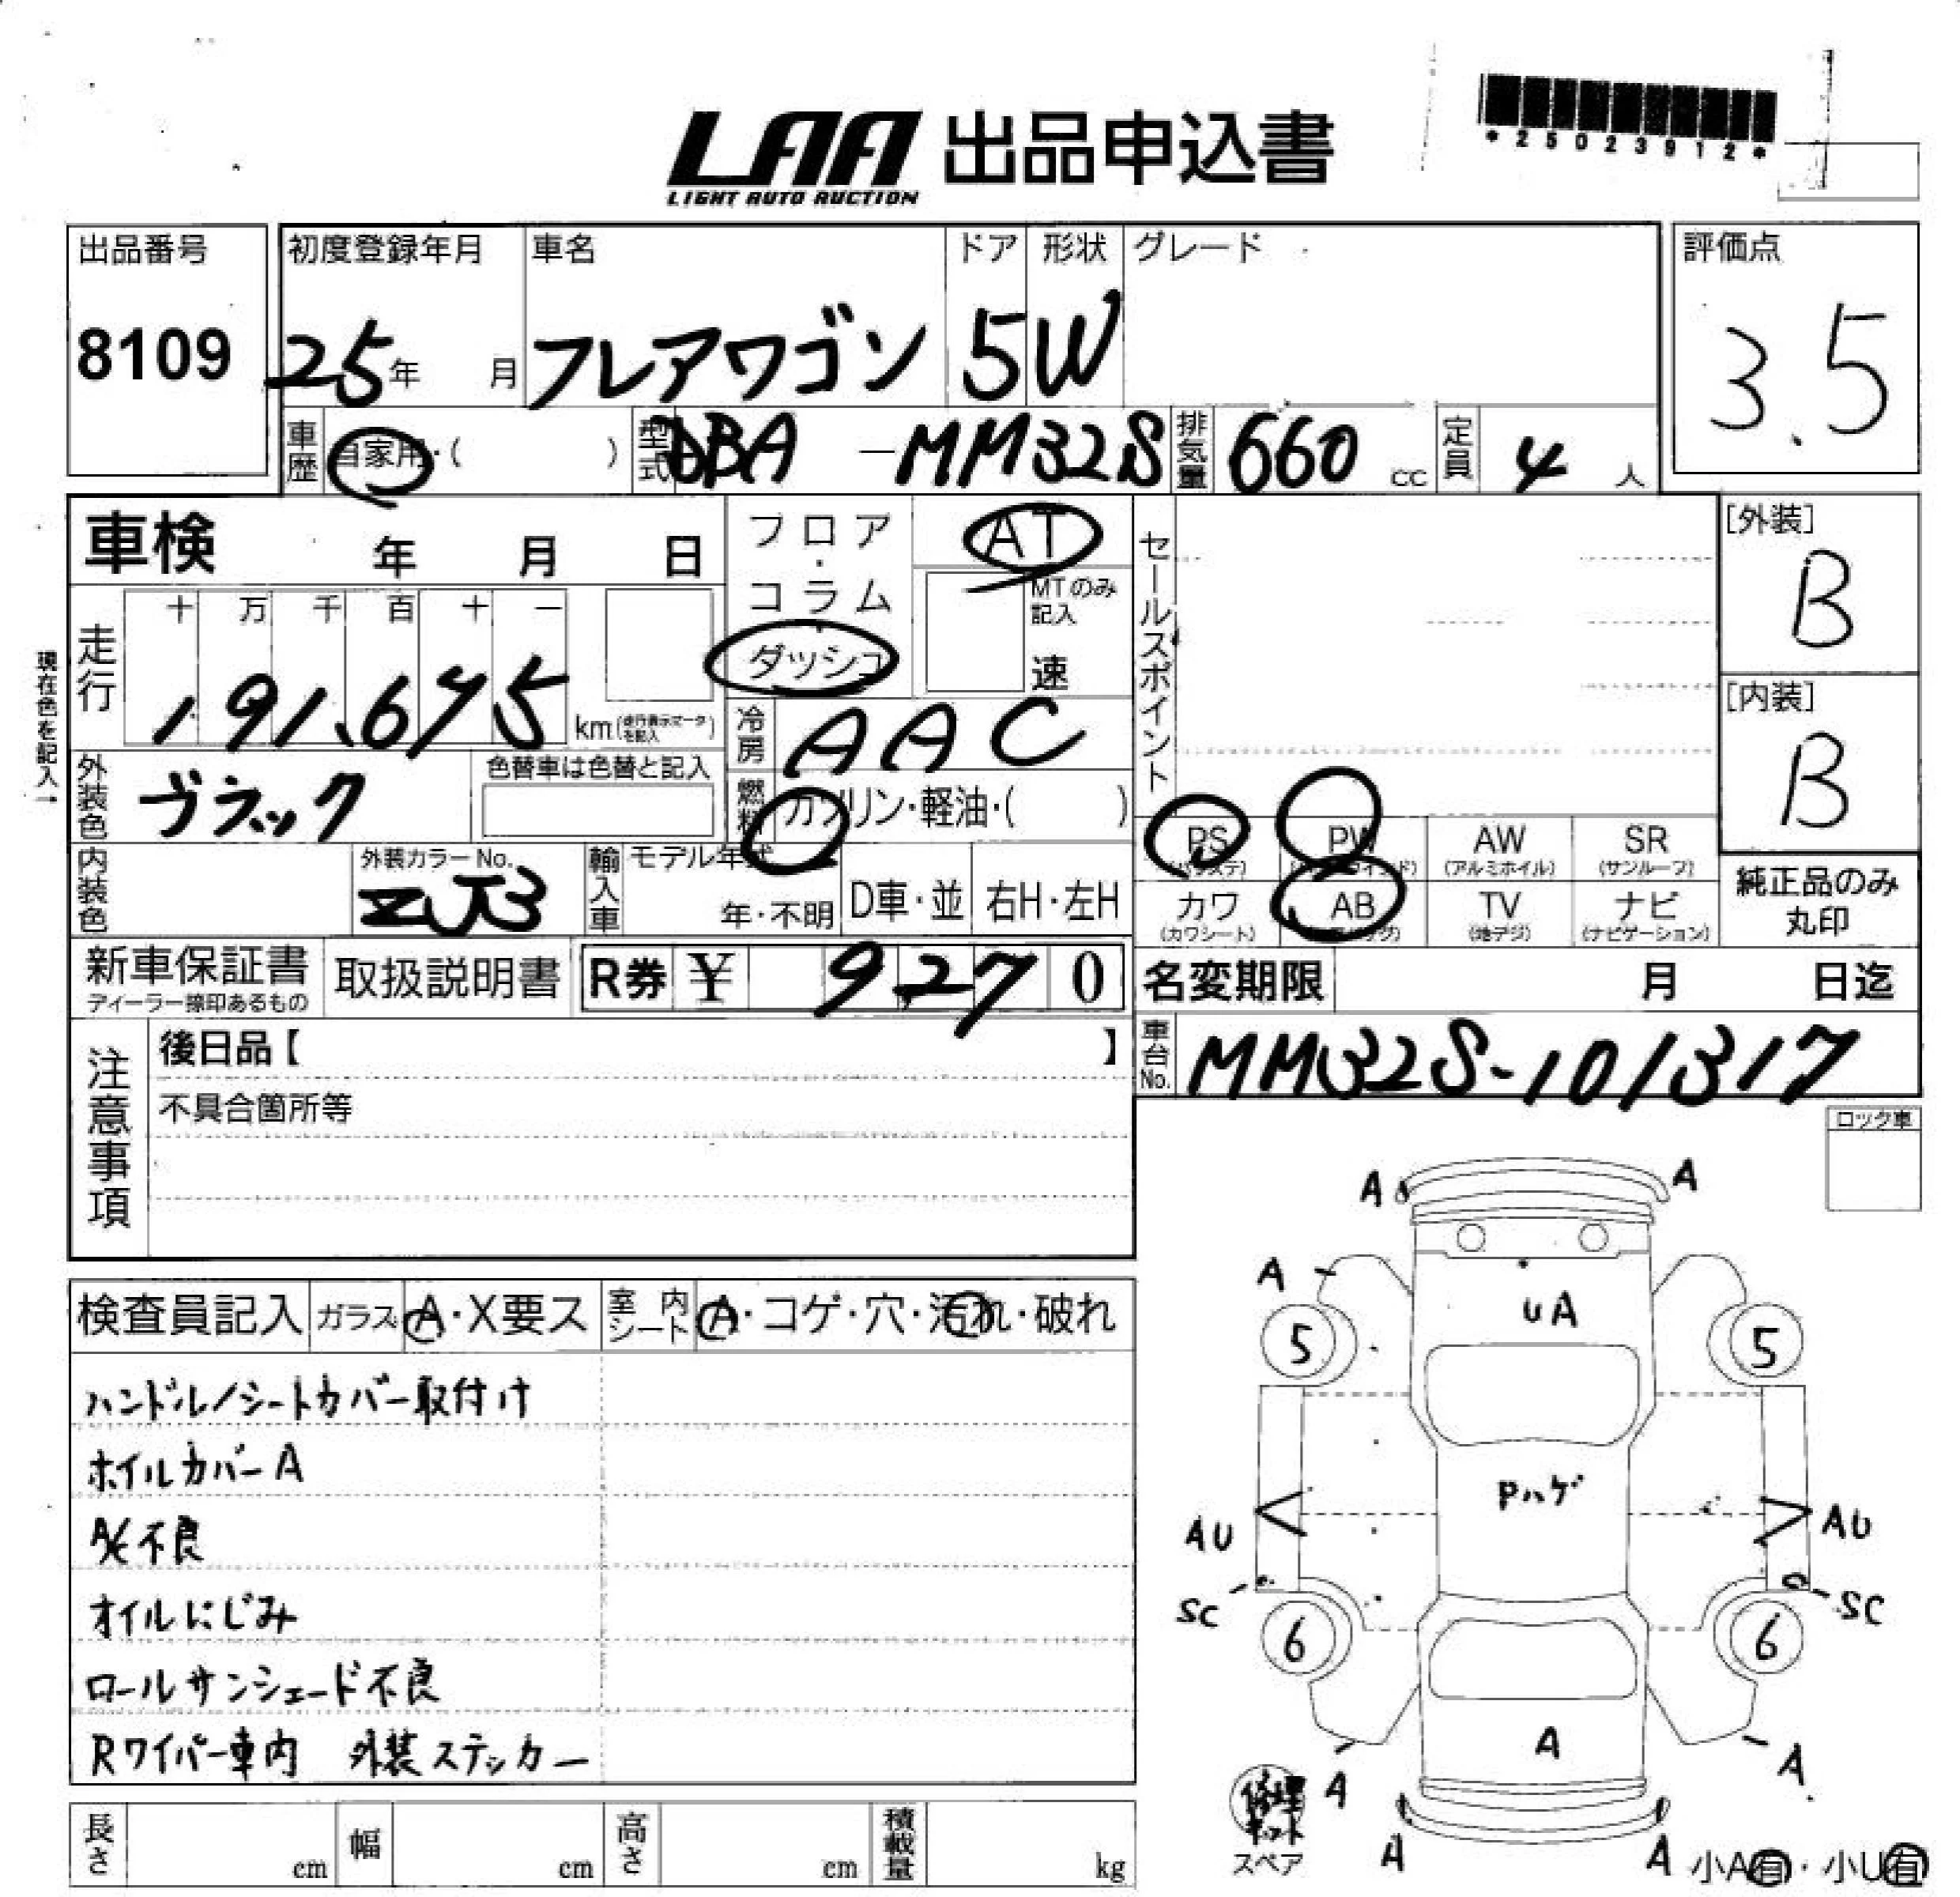 LAA 出品申込書
LIGHT AUTO AUCTION
*25023912*
出品番号 初度登録年月 車名 ドア 形状 グレード 評価点
8109 25年 月 フレアワゴン 5 W 3.5
車歴 自家用・( ) 型式 DBA -MM32S 排気量 660 cc 定員 4 人
車検 年 月 日
フロア・コラム・ダッシュ
AT
MTのみ記入
速
セールスポイント
[外装]
B
[内装]
B
現在色を記入→
走行 十 万 千 百 十 一
191,675 km(走行表示マークを記入)
冷房 AAC
外装色 ブラック 色替車は色替と記入
燃料 ガソリン・軽油・( )
PS (パワステ) PW (パワーウインド) AW (アルミホイル) SR (サンルーフ)
カワ (カワシート) AB (エアバッグ) TV (地デジ) ナビ (ナビゲーション)
純正品のみ丸印
内装色 外装カラーNo. ZJ3 輸入車 モデル年式 年・不明 D車・並 右H・左H
新車保証書 ディーラー捺印あるもの 取扱説明書 R券 ¥ 9,270
名変期限 月 日迄
車台No. MM32S-101317
注意事項
後日品【 】
不具合箇所等
ロック車
検査員記入 ガラス A・X要ス 室内シート A・コゲ・穴・汚れ・破れ
ハンドル/シートカバー取付け
ホイルカバーA
A/C不良
オイルにじみ
ロールサンシェード不良
Rワイパー車内 外装ステッカー
長さ cm 幅 cm 高さ cm 積載量 kg
A A
A
UA
5 5
Pハゲ
AU AU
SC SC
6 6
A
A A
修理キット
スペア
A A
小A有・小U有